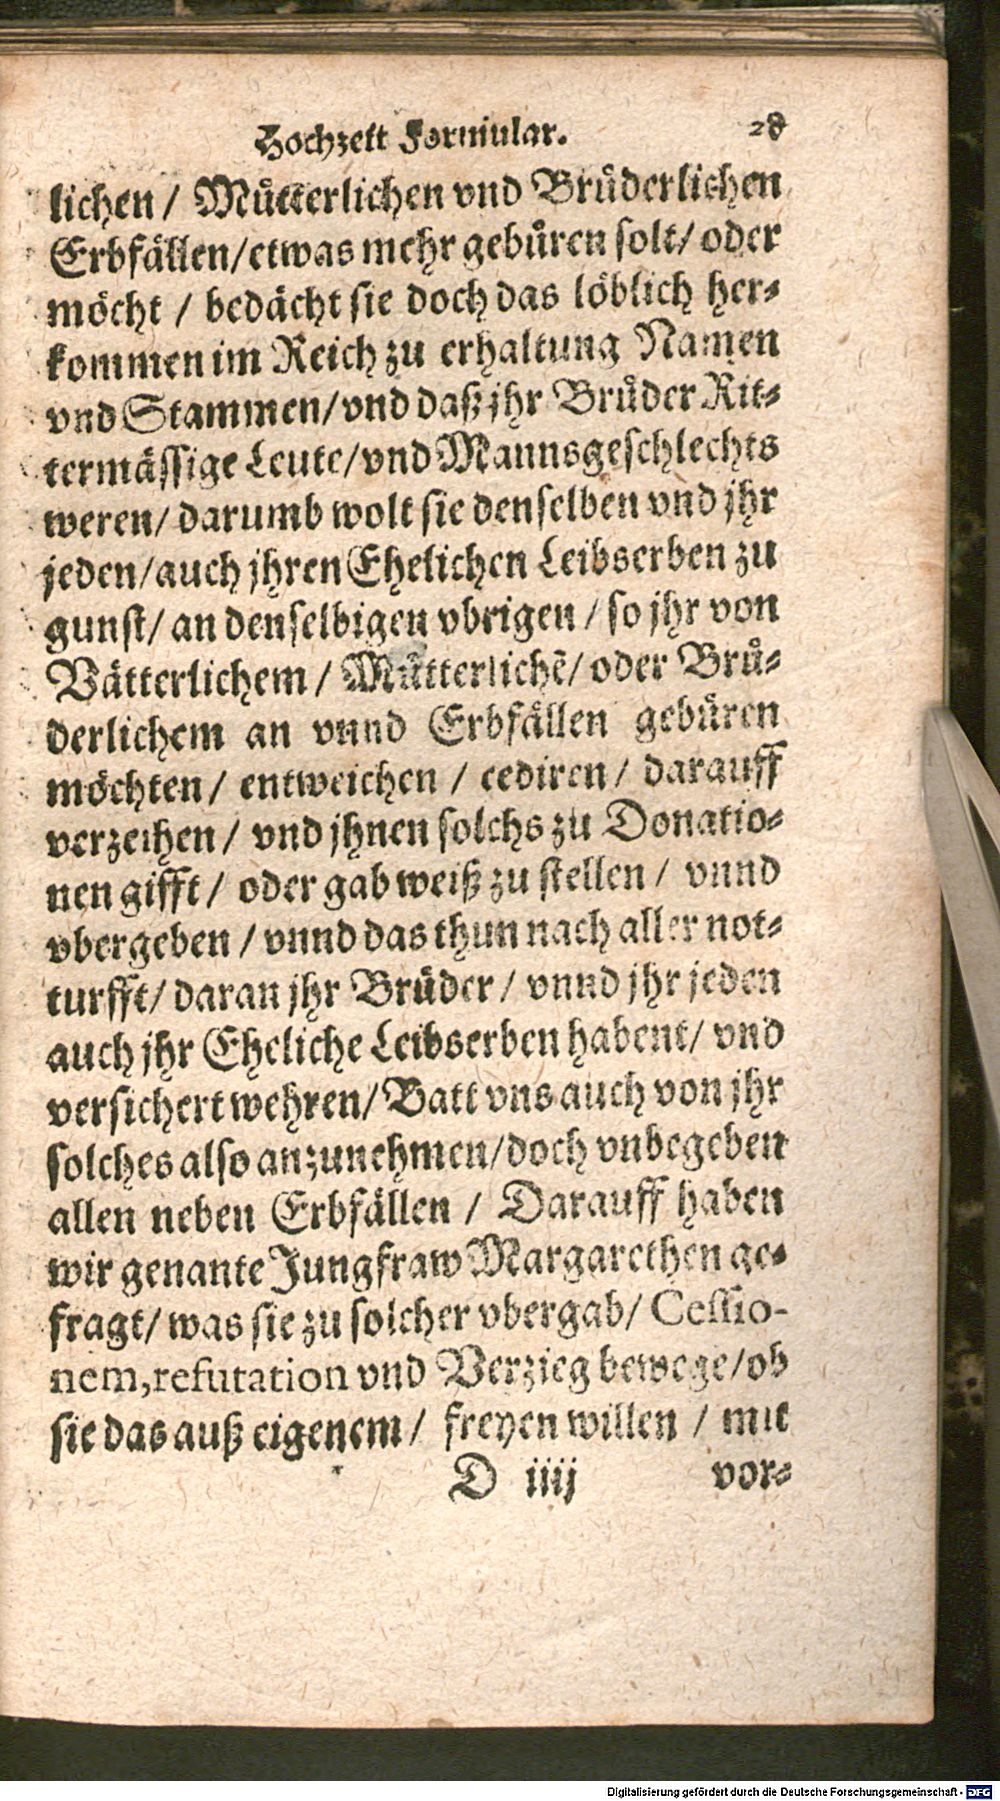 Hochzeit Formular. 28
lichen / Mütterlichen vnd Brüderlichen
Erbfällen/etwas mehr gebüren solt/ oder
möcht / bedächt sie doch das löblich her-
kommen im Reich zu erhaltung Namen
vnd Stammen/vnd daß jhr Brüder Rit-
termässige Leute/vnd Mannsgeschlechts
weren/ darumb wolt sie denselben vnd jhr
jeden/auch jhren Ehelichen Leibserben zu
gunst/ an denselbigen vbrigen / so jhr von
Vätterlichem / Mütterlichẽ/ oder Brü-
derlichem an vnnd Erbfällen gebüren
möchten / entweichen / cediren / darauff
verzeihen / vnd jhnen solchs zu Donatio-
nen gifft / oder gab weiß zu stellen / vnnd
vbergeben / vnnd das thun nach aller not-
turfft/ daran jhr Brüder / vnnd jhr jeden
auch jhr Eheliche Leibserben habent/ vnd
versichert wehren/ Batt vns auch von jhr
solches also anzunehmen/doch vnbegeben
allen neben Erbfällen / Darauff haben
wir genante Jungfraw Margarethen ge-
fragt/ was sie zu solcher vbergab/ Cessio-
nem,refutation vnd Verzieg bewege/ob
sie das auß eigenem / freyen willen / mit
D iiij vor-
Digitalisierung gefördert durch die Deutsche Forschungsgemeinschaft - DFG